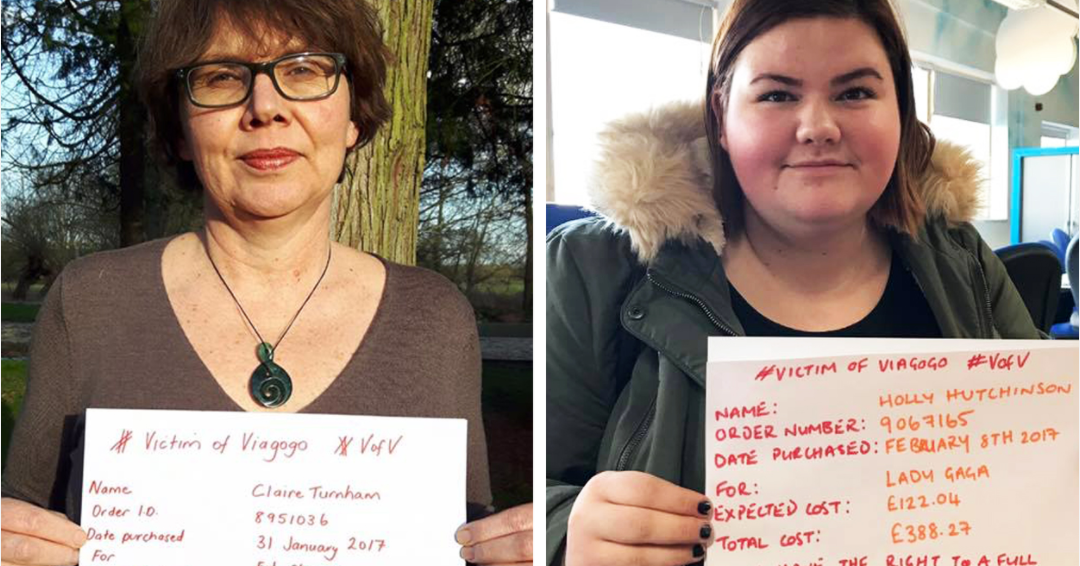 # Victim of Viagogo # VofV
Name Claire Turnham
Order I.D. 8951036
Date purchased 31 January 2017
For
#VICTIM OF VIAGOGO #VOFV
NAME: HOLLY HUTCHINSON
ORDER NUMBER: 9067165
DATE PURCHASED: FEBRUARY 8TH 2017
FOR: LADY GAGA
EXPECTED COST: £122.04
TOTAL COST: £388.27
THE RIGHT TO A FULL